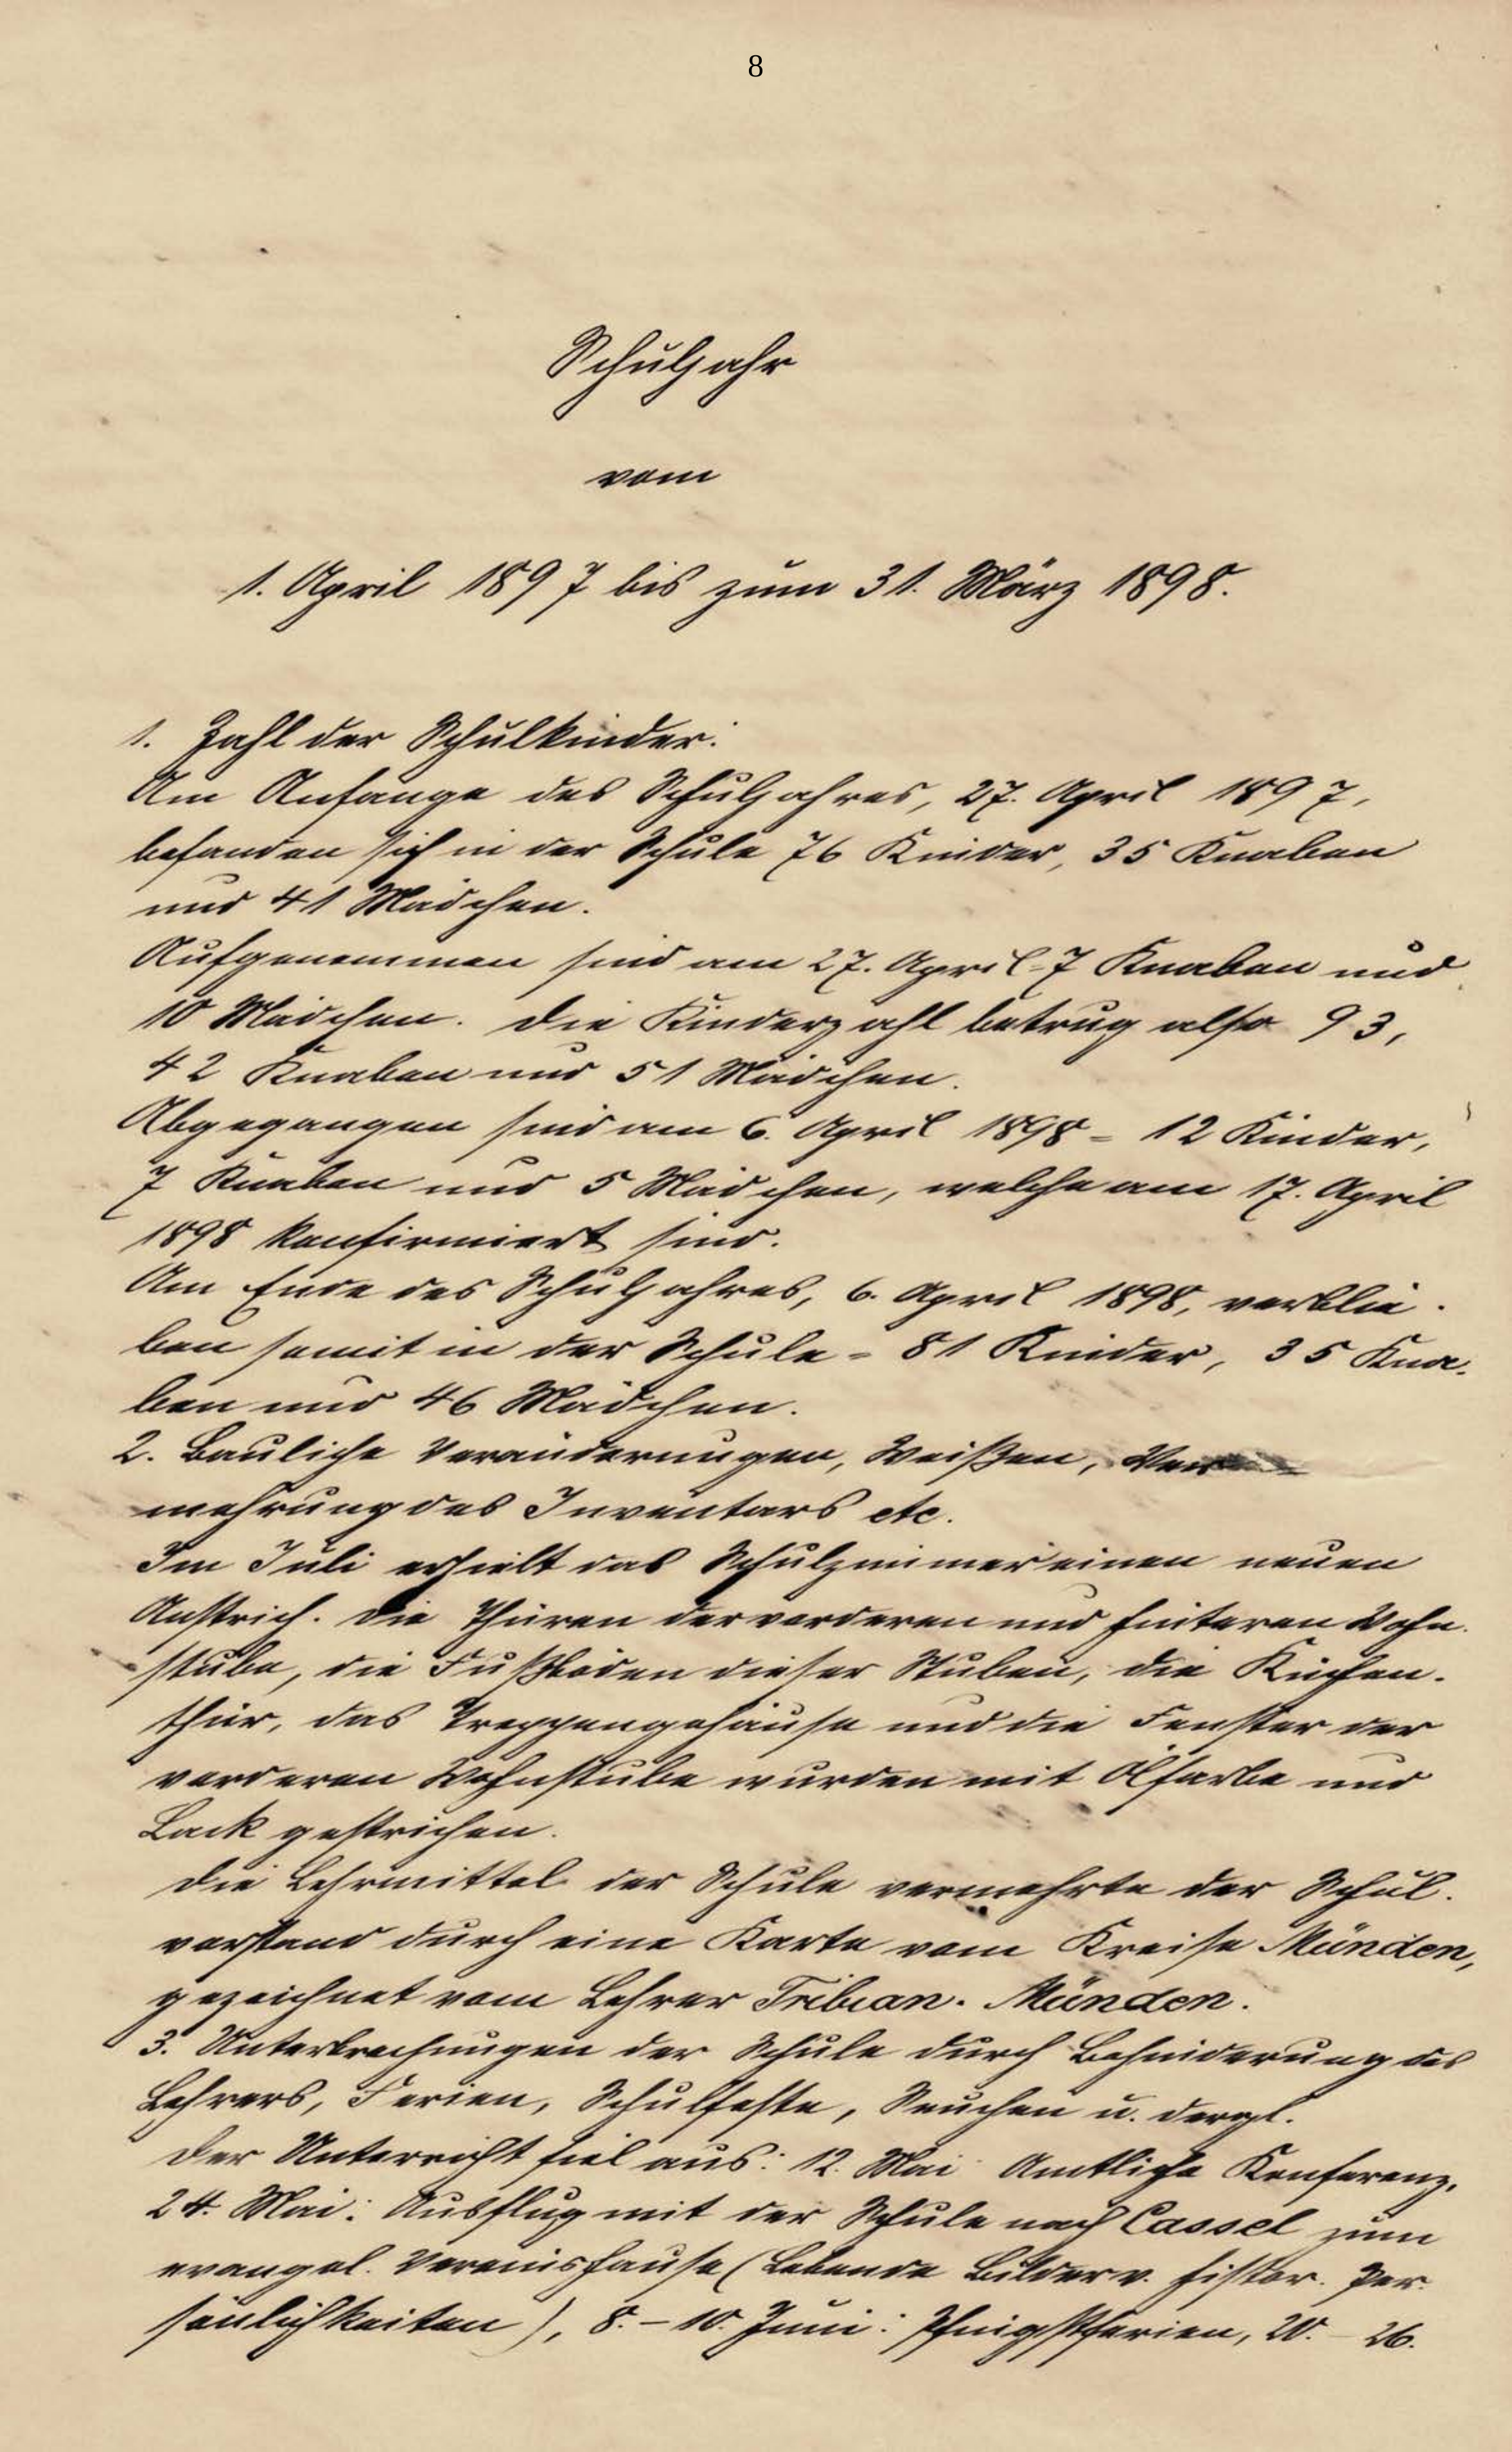 8
Schuljahr
vom
1. April 1897 bis zum 31. März 1898.
1. Zahl der Schulkinder.
Am Anfange des Schuljahres, 27. April 1897,
befanden sich in der Schule 76 Kinder, 35 Knaben
und 41 Mädchen.
Aufgenommen sind am 27. April - 7 Knaben und
10 Mädchen. Die Kinderzahl betrug also 93,
42 Knaben und 51 Mädchen.
Abgegangen sind am 6. April 1898 = 12 Kinder,
7 Knaben und 5 Mädchen, welche am 17. April
1898 konfirmiert sind.
Am Ende des Schuljahres, 6. April 1898, verblie-
ben somit in der Schule = 81 Kinder, 35 Kna-
ben und 46 Mädchen.
2. Bauliche Veränderungen, Weißen, Ver-
mehrung des Inventars etc.
Im Juli erhielt das Schulzimmer einen neuen
Anstrich. Die Thüren der vorderen und hinteren Wohn-
stube, die Fußböden dieser Stuben, die Küchen-
thür, das Treppengehäuse und die Fenster der
vorderen Wohnstube wurden mit Ölfarbe und
Lack gestrichen.
Die Lehrmittel der Schule vermehrte der Schul-
vorstand durch eine Karte vom Kreise Münden,
gezeichnet vom Lehrer Tribian - Münden.
3. Unterbrechungen der Schule durch Behinderung des
Lehrers, Ferien, Schulfeste, Seuchen u. dergl.
Der Unterricht fiel aus: 12. Mai Amtliche Konferenz,
24. Mai: Ausflug mit der Schule nach Cassel zum
evangel. Vereinshause (Lebende Bilder v. histor. Per-
sönlichkeiten), 8. - 10. Juni: Pfingstferien, 20. - 26.